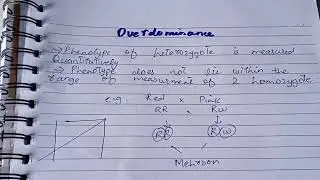 Overdominance
→ Phenotype of heterozygote is measured
Quantitatively
→ Phenotype does not lie within the
range of measurment of 2 homozygote
e.g. Red x Pink
RR , RW
R R R W
Mehroon